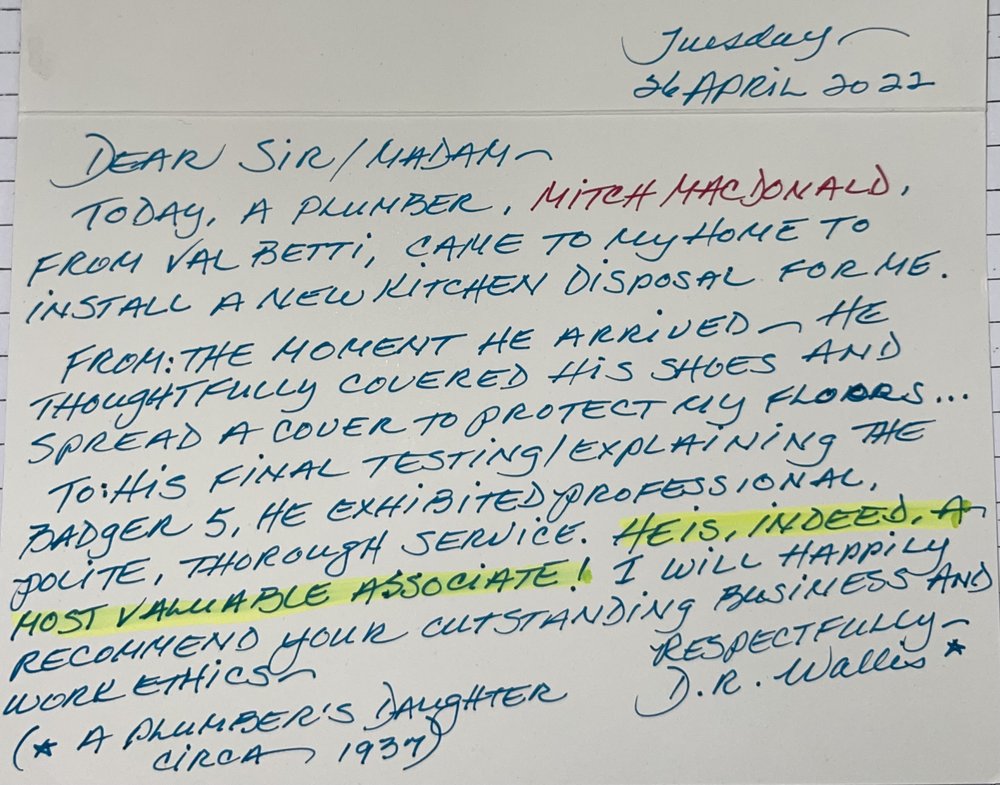 Tuesday —
26 APRIL 2022
DEAR SIR / MADAM —
TODAY, A PLUMBER, MITCH MACDONALD,
FROM VAL BETTI, CAME TO MY HOME TO
INSTALL A NEW KITCHEN DISPOSAL FOR ME.
FROM: THE MOMENT HE ARRIVED — HE
THOUGHTFULLY COVERED HIS SHOES AND
SPREAD A COVER TO PROTECT MY FLOORS...
TO: HIS FINAL TESTING/EXPLAINING THE
BADGER 5, HE EXHIBITED PROFESSIONAL,
POLITE, THOROUGH SERVICE. HE IS, INDEED, A
MOST VALUABLE ASSOCIATE! I WILL HAPPILY
RECOMMEND YOUR OUTSTANDING BUSINESS AND
WORK ETHICS —
RESPECTFULLY —
D.R. Wallis *
(* A PLUMBER'S DAUGHTER
CIRCA 1937)